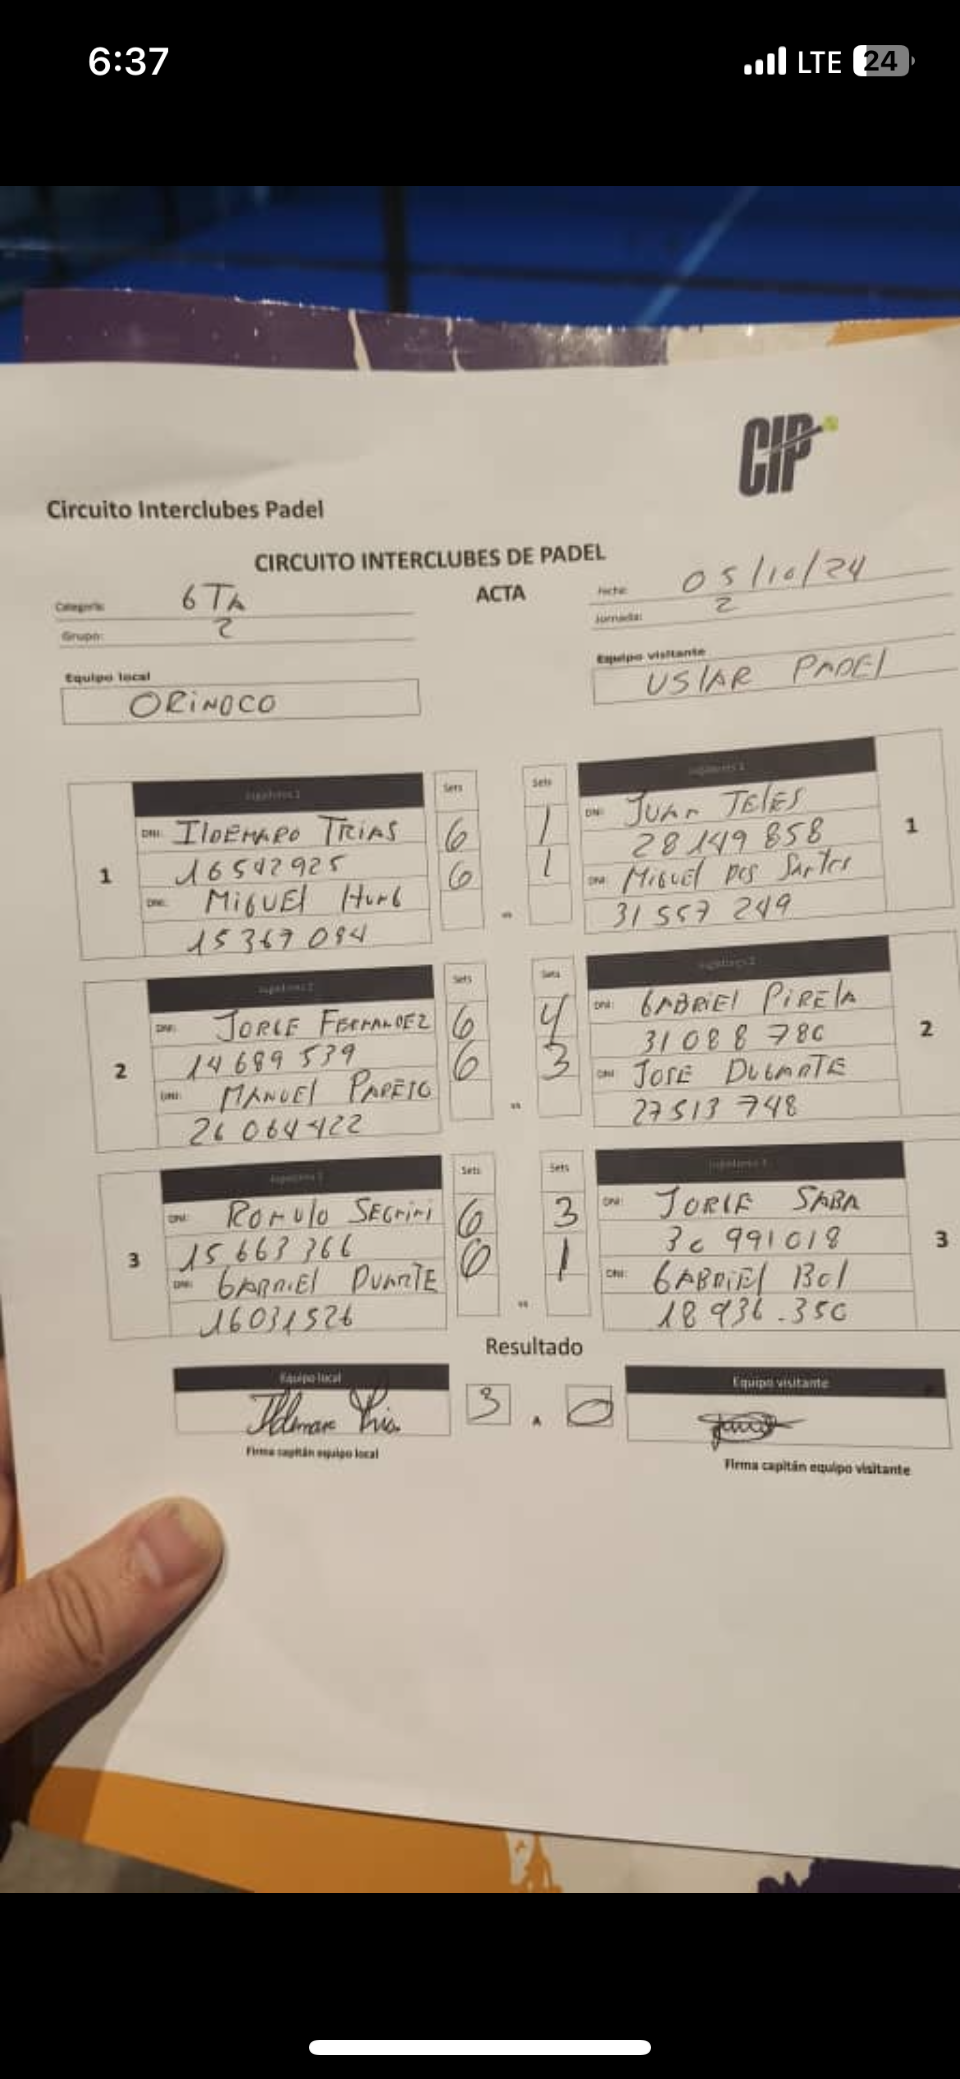 6:37
LTE 24
CIP
Circuito Interclubes Padel
CIRCUITO INTERCLUBES DE PADEL
ACTA
Categoría: 6TA
Fecha: 05/10/24
Grupo: 2
Jornada: 2
Equipo local
Equipo visitante
ORINOCO
USLAR PADEL
Jugadores 1 Sets Sets Jugadores 1
1
DNI: ILDEMARO TRIAS 6 1 DNI: JUAN TELES
16542925 6 1 28149858
DNI: MIGUEL DNI: MIGUEL DOS SANTOS
15367094 vs 31557249
1
Jugadores 2 Sets Sets Jugadores 2
2
DNI: JORGE FERNANDEZ 6 4 DNI: GABRIEL PIRELA
14689539 6 3 31088780
DNI: MANUEL DNI: JOSE DUGARTE
26064422 vs 27513748
2
Jugadores 3 Sets Sets Jugadores 3
3
DNI: ROMULO SEGNINI 6 3 DNI: JORGE SABA
15663366 6 1 30991018
DNI: GABRIEL DUARTE DNI: GABRIEL
16031526 vs 18936.350
3
Resultado
Equipo local 3 A 0 Equipo visitante
Firma capitán equipo local
Firma capitán equipo visitante